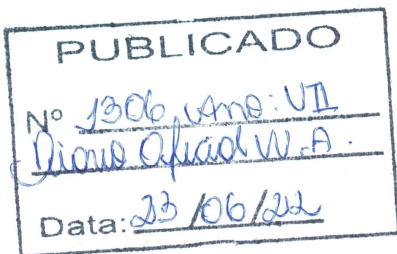 PUBLICADO
Nº 1306, Ano: VII
Diario Oficial W.A.
Data: 23/06/22